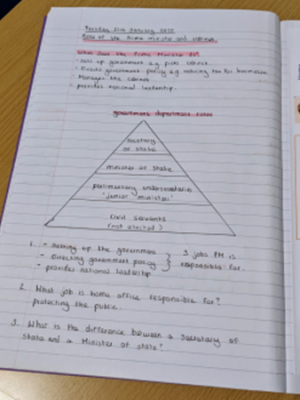 Tuesday 21st January 2020
Role of the prime minister and cabinet.
What does the Prime Minister do?
- Sets up government e.g pick cabinet
- Directs government policy e.g reducing tax for
- Manages the cabinet
- provides national leadership.
government department roles
secretary
of state
minister of state
parlimentary undersecretaries
'junior ministers'
Civil servants
(not elected)
1. - Setting up the government
- Directing government policy
- provides national leadership
3 jobs PM is
responsible for.
2. What job is home office responsible for?
protecting the public.
3. What is the difference between a Secretary of
State and a Minister of state?